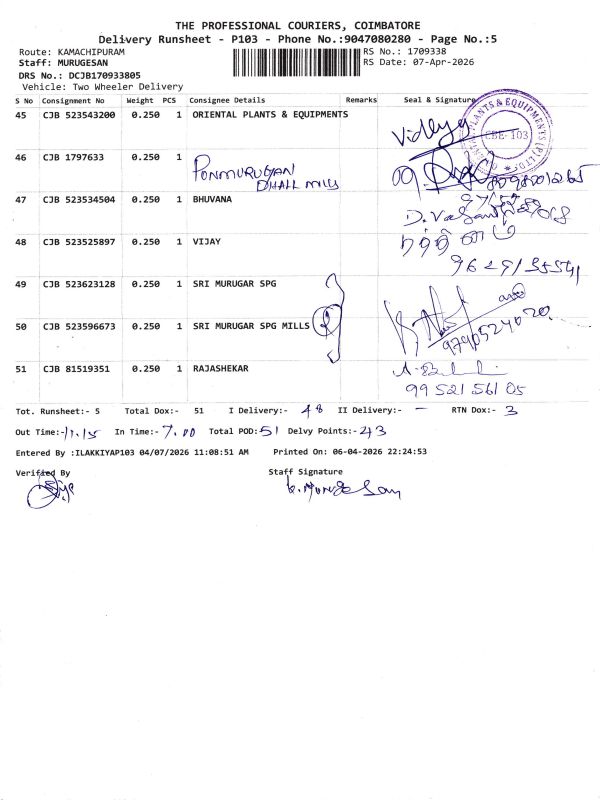 THE PROFESSIONAL COURIERS, COIMBATORE
Delivery Runsheet - P103 - Phone No.:9047080280 - Page No.:5
Route: KAMACHIPURAM
RS No.: 1709338
Staff: MURUGESAN
RS Date: 07-Apr-2026
DRS No.: DCJB170933805
Vehicle: Two Wheeler Delivery
S No Consignment No Weight PCS Consignee Details Remarks Seal & Signature
45 CJB 523543200 0.250 1 ORIENTAL PLANTS & EQUIPMENTS Vidhya
CBE-103
46 CJB 1797633 0.250 1 PONMURUGAN
DHALL MILLS
47 CJB 523534504 0.250 1 BHUVANA
48 CJB 523525897 0.250 1 VIJAY
49 CJB 523623128 0.250 1 SRI MURUGAR SPG
50 CJB 523596673 0.250 1 SRI MURUGAR SPG MILLS 2
9790524020
51 CJB 81519351 0.250 1 RAJASHEKAR
99521 56105
Tot. Runsheet:- 5 Total Dox:- 51 I Delivery:- 48 II Delivery:- - RTN Dox:- 3
Out Time:- 11.15 In Time:- 7.00 Total POD: 51 Delvy Points:- 43
Entered By :ILAKKIYAP103 04/07/2026 11:08:51 AM Printed On: 06-04-2026 22:24:53
Verified By Staff Signature